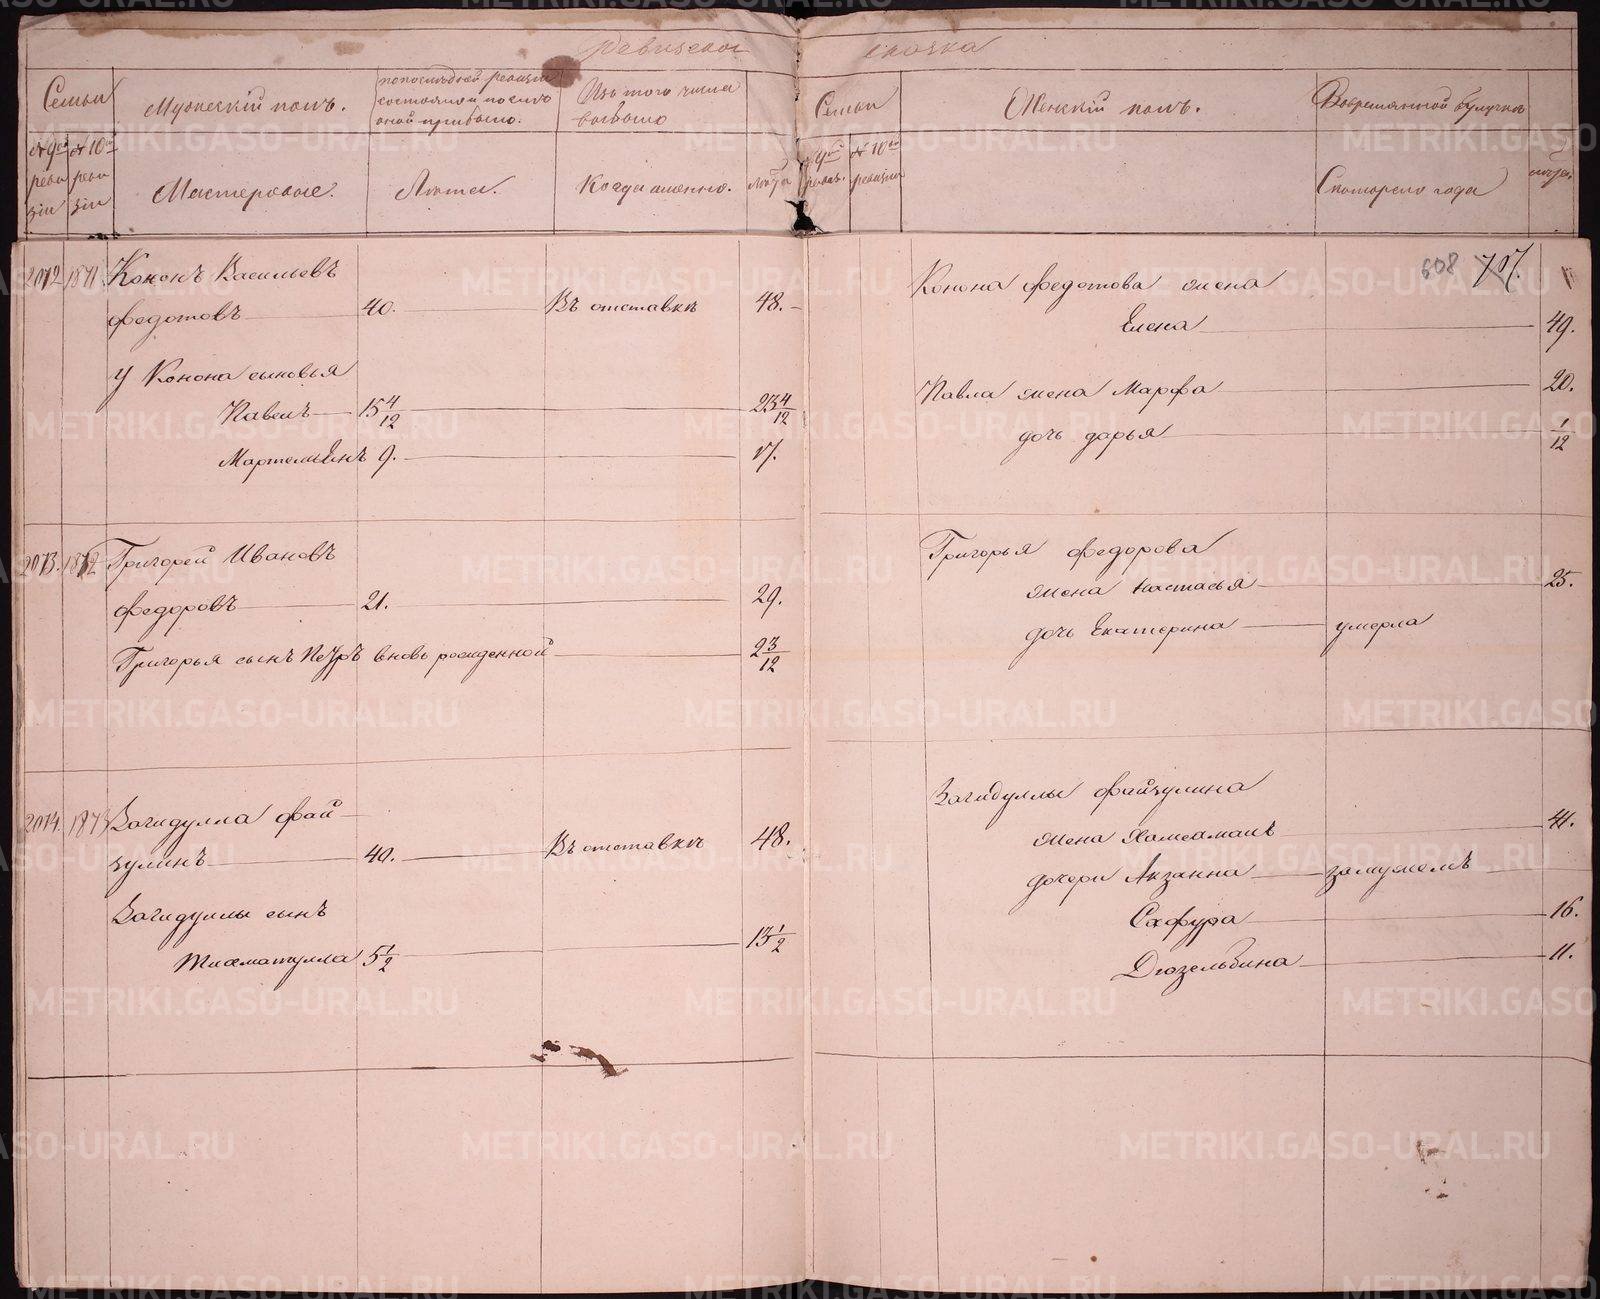 Ревизская сказка
Семьи
Мужеский полъ.
по последней ревизіи состояло и после оной прибыло.
Изъ того числа выбыло
Семьи
Женскій полъ.
Во временной отлучке
№ 9ой ревизіи
№ 10ой ревизіи
Мастеровые.
Лета.
Когда именно.
лета
№ 9ой ревиз.
№ 10ой ревизіи
Съ котораго года
лета
608 707.
2012 1871 Кононъ Васильевъ
Федотовъ 40. Въ отставке 48.
У Конона сыновья
Павелъ 15 4/12 23 4/12
Мартемьянъ 9. 17.
Конона Федотова жена
Елена 49.
Павла жена Марфа 20.
дочь Дарья 1/12
2013. 1872 Григорей Ивановъ
Федоровъ 21. 29.
Григорья сынъ Петръ вновь рожденной 2 3/12
Григорья Федорова
жена Настасья 25.
дочь Екатерина умерла
2014. 1873 Загидулла Фай
зулинъ 40. Въ отставке 48.
Загидуллы сынъ
5 1/2 13 1/2
Загидуллы Файзулина
жена 41.
дочери замужемъ
Сафура 16.
Дюзельбина 11.
METRIKI.GASO-URAL.RU